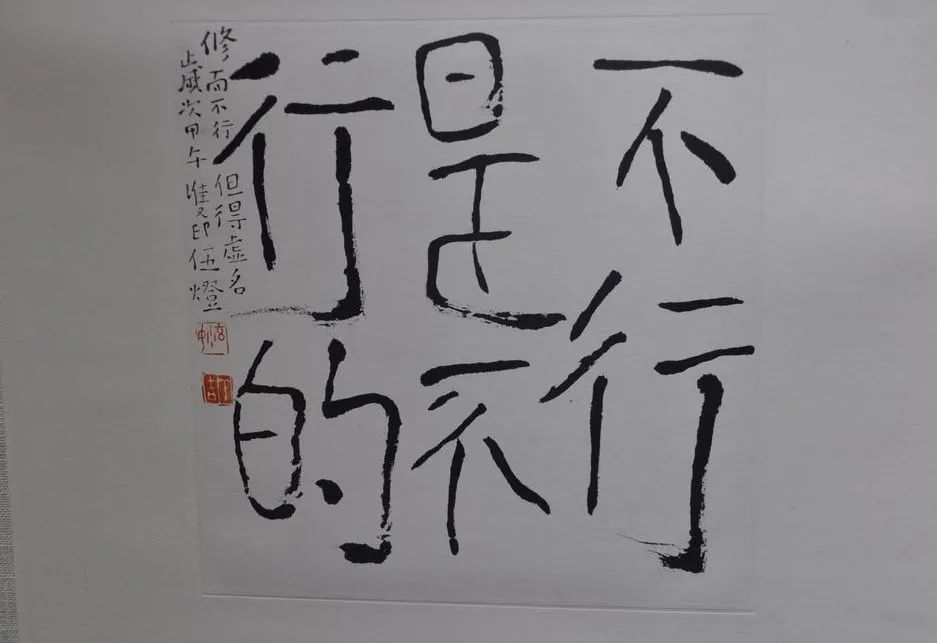 不行
是不
行的
修而不行但得虚名
止岁次甲午 印伍燈